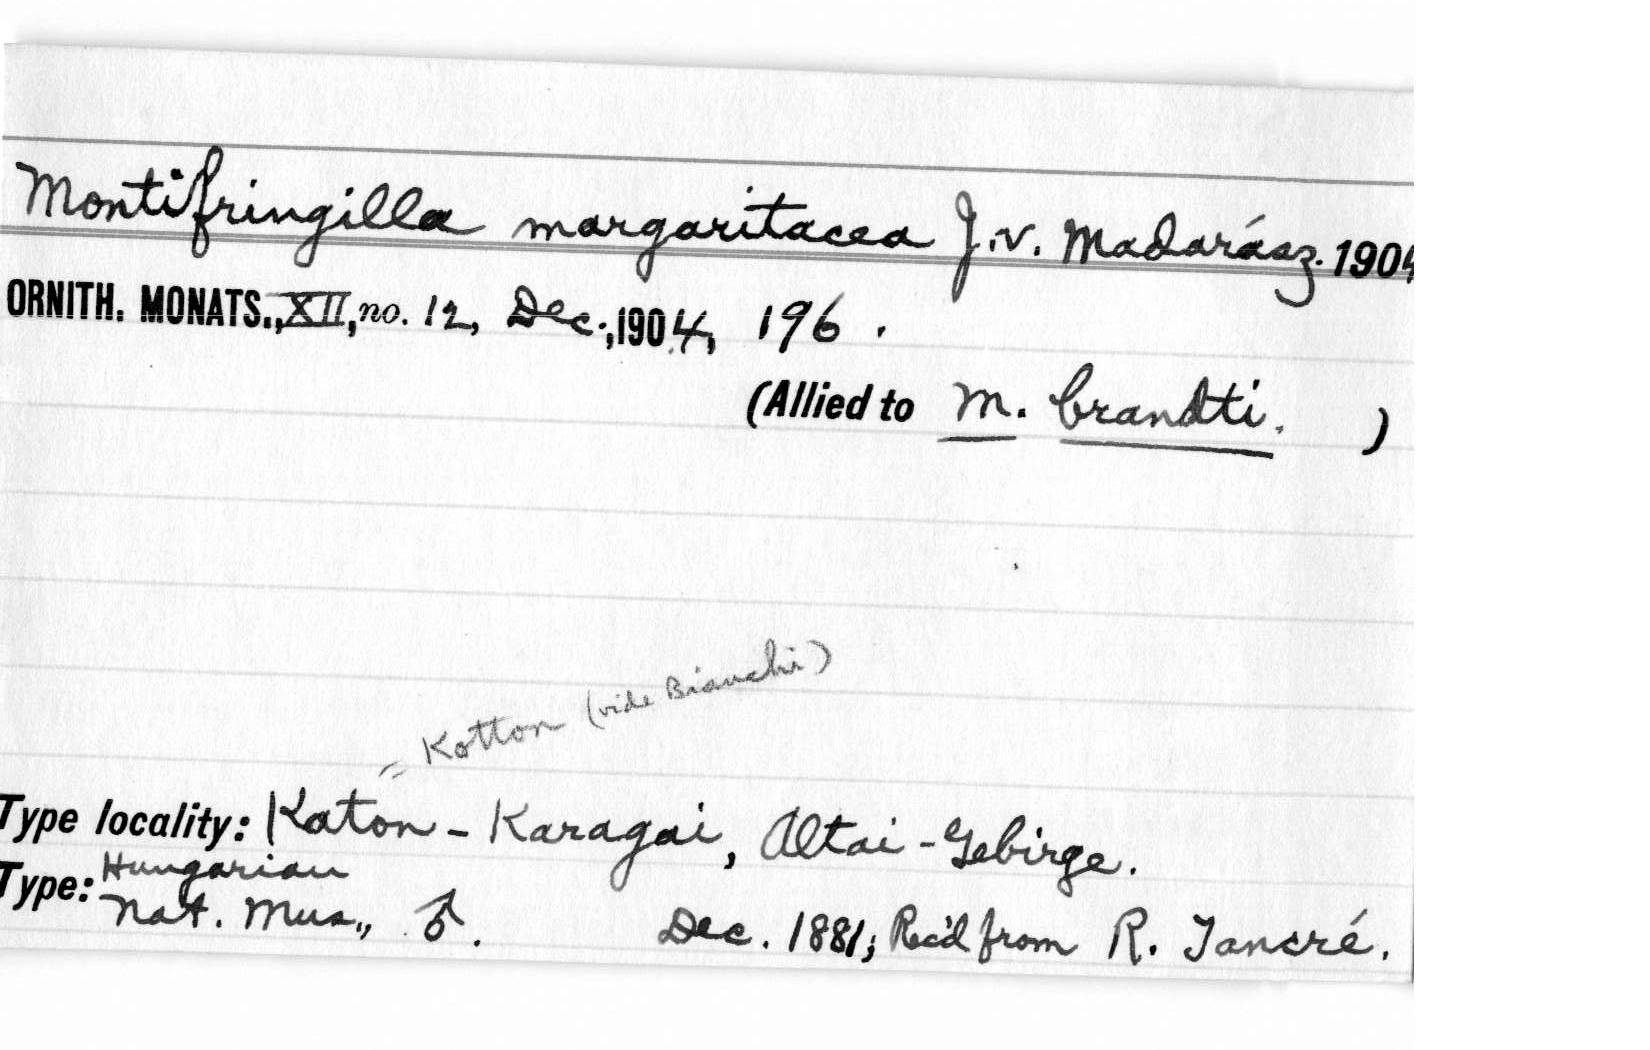 Montifringilla margaritacea J. v. Madarász. 1904
ORNITH. MONATS., XII, no. 12, Dec., 1904, 196.
(Allied to M. brandti. )
= Kotton (vide Bianchi)
Type locality: Katon-Karagai, Altai-Gebirge.
Type: Hungarian
Nat. Mus., ♂. Dec. 1881; Rec'd from R. Tancré.